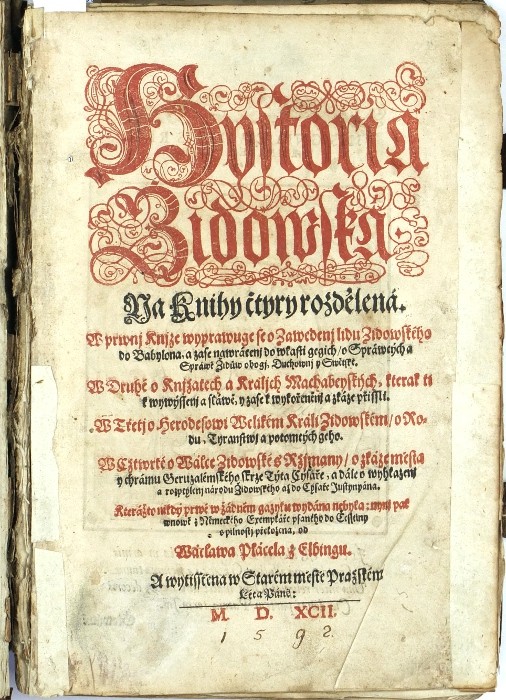 Hystoria
Židowska
Na Knihy čtyry rozdělená.
W prwnj Knize wyprawuge se o Zawedenj lidu Židowského
do Babylona, a zase nawrácenj do wlasti gegich / o Spráwcých a
Spráwě Židůw obogj, Duchownj y Swětské.
W Druhé o Knjžatech a Králjch Machabeyských, kterak ti
k wywýssenj a sláwě, y zase k wykořeněnj a zkáze přissli.
W Třetj o Herodesowi Welikém Králi Židowském / o Ro-
du, Tyranstwj a potomcých geho.
W Cžtwrté o Wálce Židowské s Ržjmany / o zkáze města
y chrámu Geruzalémského skrze Týta Cýsaře, a dále o wyhlazenj
a rozptýlenj národu Židowského až do Cýsaře Justynyána.
Kterážto nikdý prwé w žádném gazyku wydána nebyla: nynj pak
wnowě z Německého Exempláře psaného do Cžesstiny
s pilnostj přeložena, od
Wácława Plácela z Elbingu.
A wytisstěna w Starém městě Pražském
Léta Páně:
M D. XCII.
1 5 9 2.